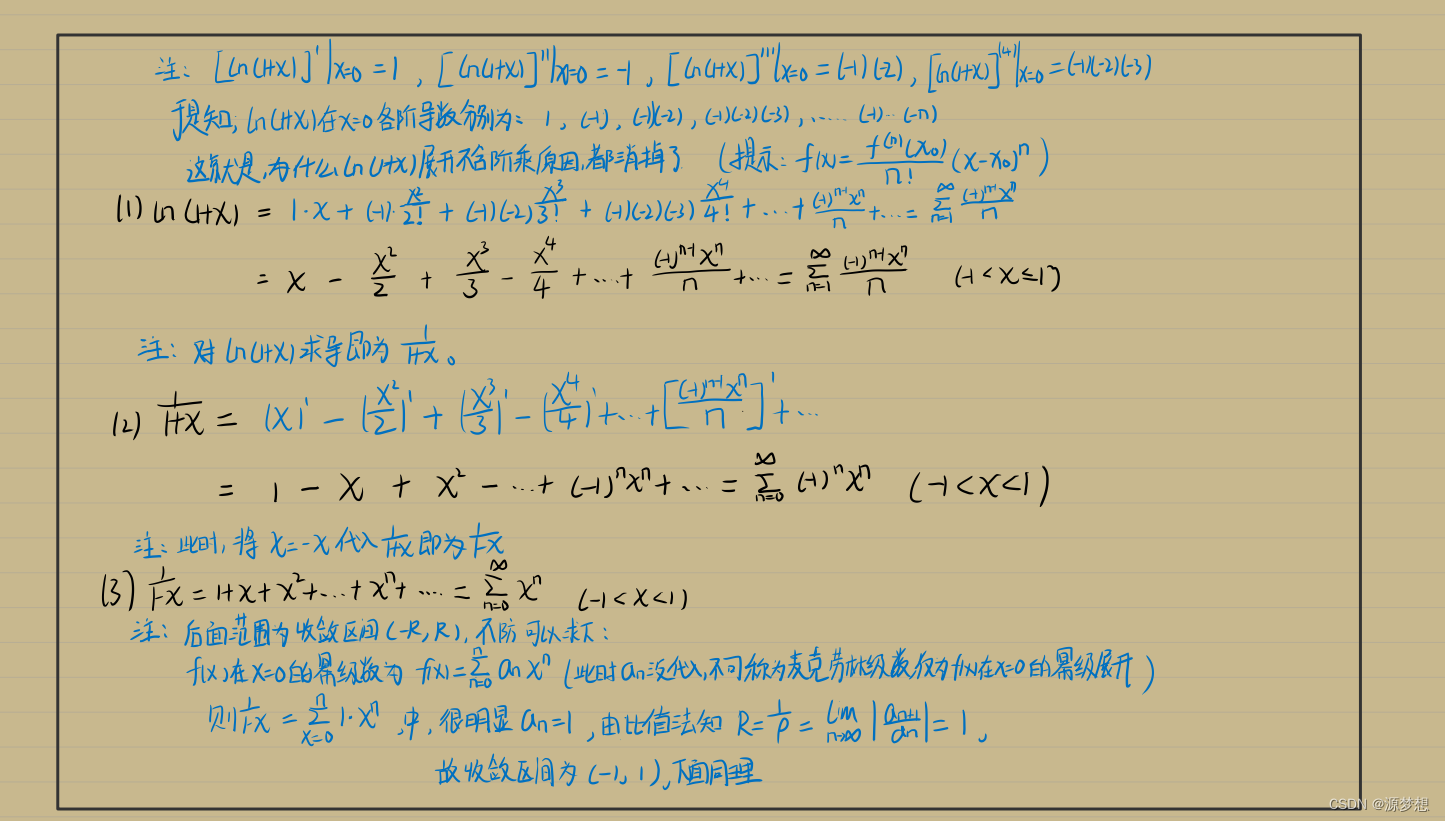 注: [ln(1+x)]'|x=0 = 1 , [ln(1+x)]''|x=0 = -1 , [ln(1+x)]'''|x=0 = (-1)(-2) , [ln(1+x)]^(4)|x=0 = (-1)(-2)(-3)
知, ln(1+x)在x=0各阶导数分别为: 1, (-1), (-1)(-2), (-1)(-2)(-3), …… (-1)…(-n)
这就是,为什么ln(1+x)展开不含阶乘原因,都消掉了 (提示: f(x)= f^(n)(x₀)/n! (x-x₀)^n )
(1) ln(1+x) = 1·x + (-1)·x²/2! + (-1)(-2)x³/3! + (-1)(-2)(-3)x⁴/4! + … + (-1)^(n-1)x^n/n + … = ∑_{n=1}^{∞} (-1)^(n-1)x^n/n
= x - x²/2 + x³/3 - x⁴/4 + … + (-1)^(n-1)x^n/n + … = ∑_{n=1}^{∞} (-1)^(n-1)x^n/n (-1<x≤1)
注: 对ln(1+x)求导即为 1/(1+x) 。
(2) 1/(1+x) = (x)' - (x²/2)' + (x³/3)' - (x⁴/4)' + … + [(-1)^(n-1)x^n/n]' + …
= 1 - x + x² - … + (-1)^n x^n + … = ∑_{n=0}^{∞} (-1)^n x^n (-1<x<1)
注: 此时, 将 x=-x 代入 1/(1+x) 即为 1/(1-x)
(3) 1/(1-x) = 1+x+x²+…+x^n+… = ∑_{n=0}^{∞} x^n (-1<x<1)
注: 后面范围为收敛区间(-R,R), 不防可以求下:
f(x)在x=0的幂级数为 f(x)=∑_{n=0}^{n} aₙx^n (此时aₙ没代入,不可称为麦克劳林级数,仅为f(x)在x=0的幂级展开)
则 1/(1-x) = ∑_{x=0}^{n} 1·x^n 中, 很明显 aₙ=1 , 由比值法知 R=1/ρ = lim_{n→∞} |aₙ₊₁/aₙ| = 1 ,
故收敛区间为(-1,1),下面同理
CSDN @源梦想